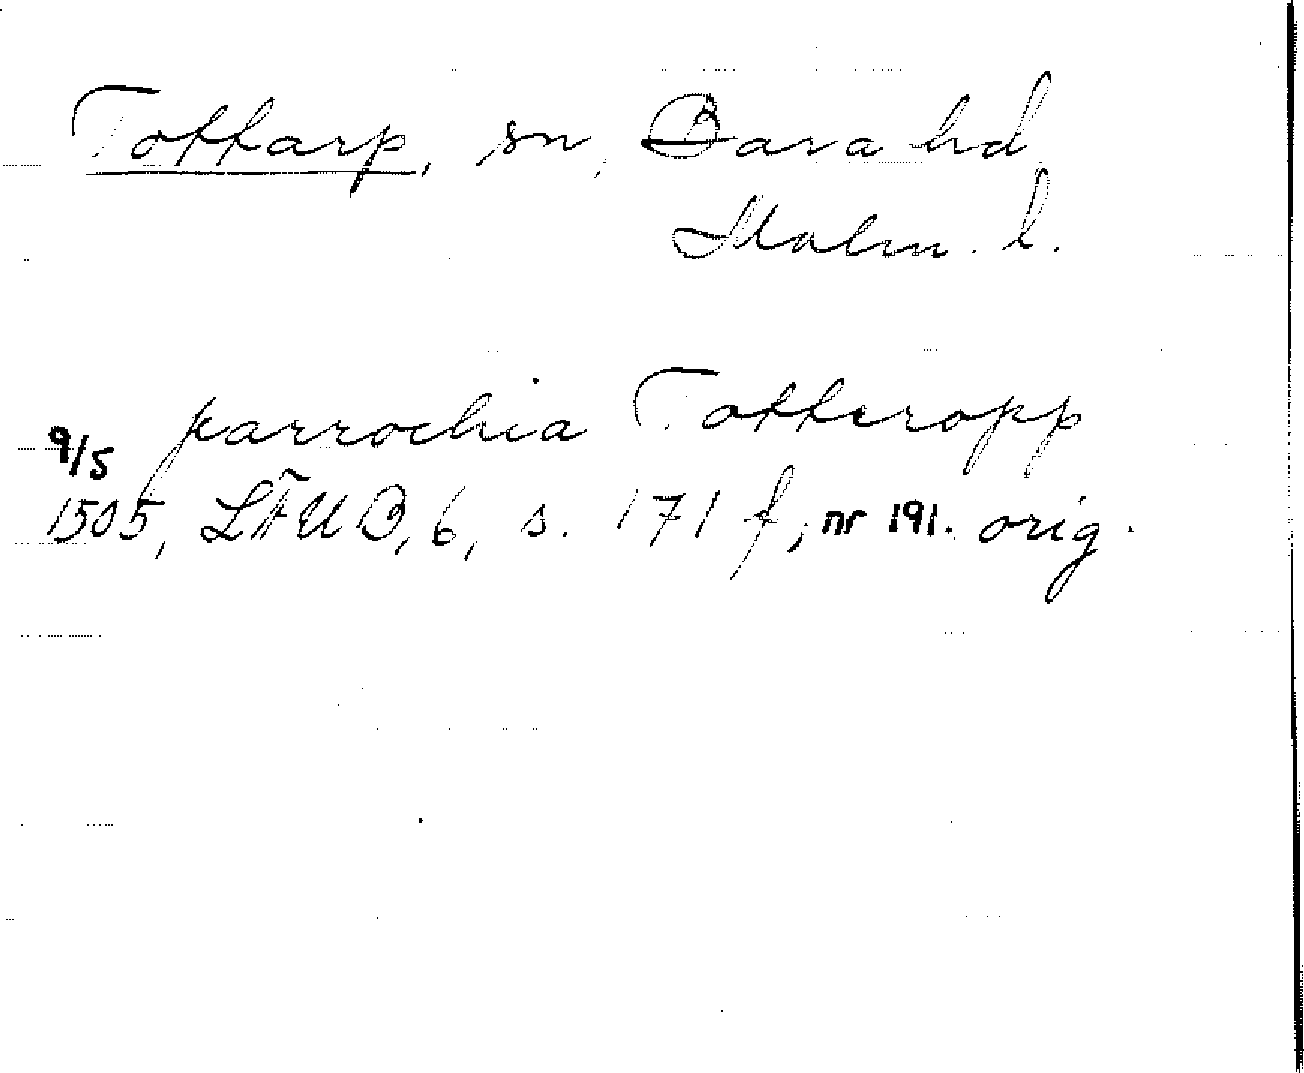 Tottarp, sn, Bara hd,
Malm. l.
parrochia Totteropp
9/5
1505, LÄUB, 6, s. 171 f, nr 191. orig.